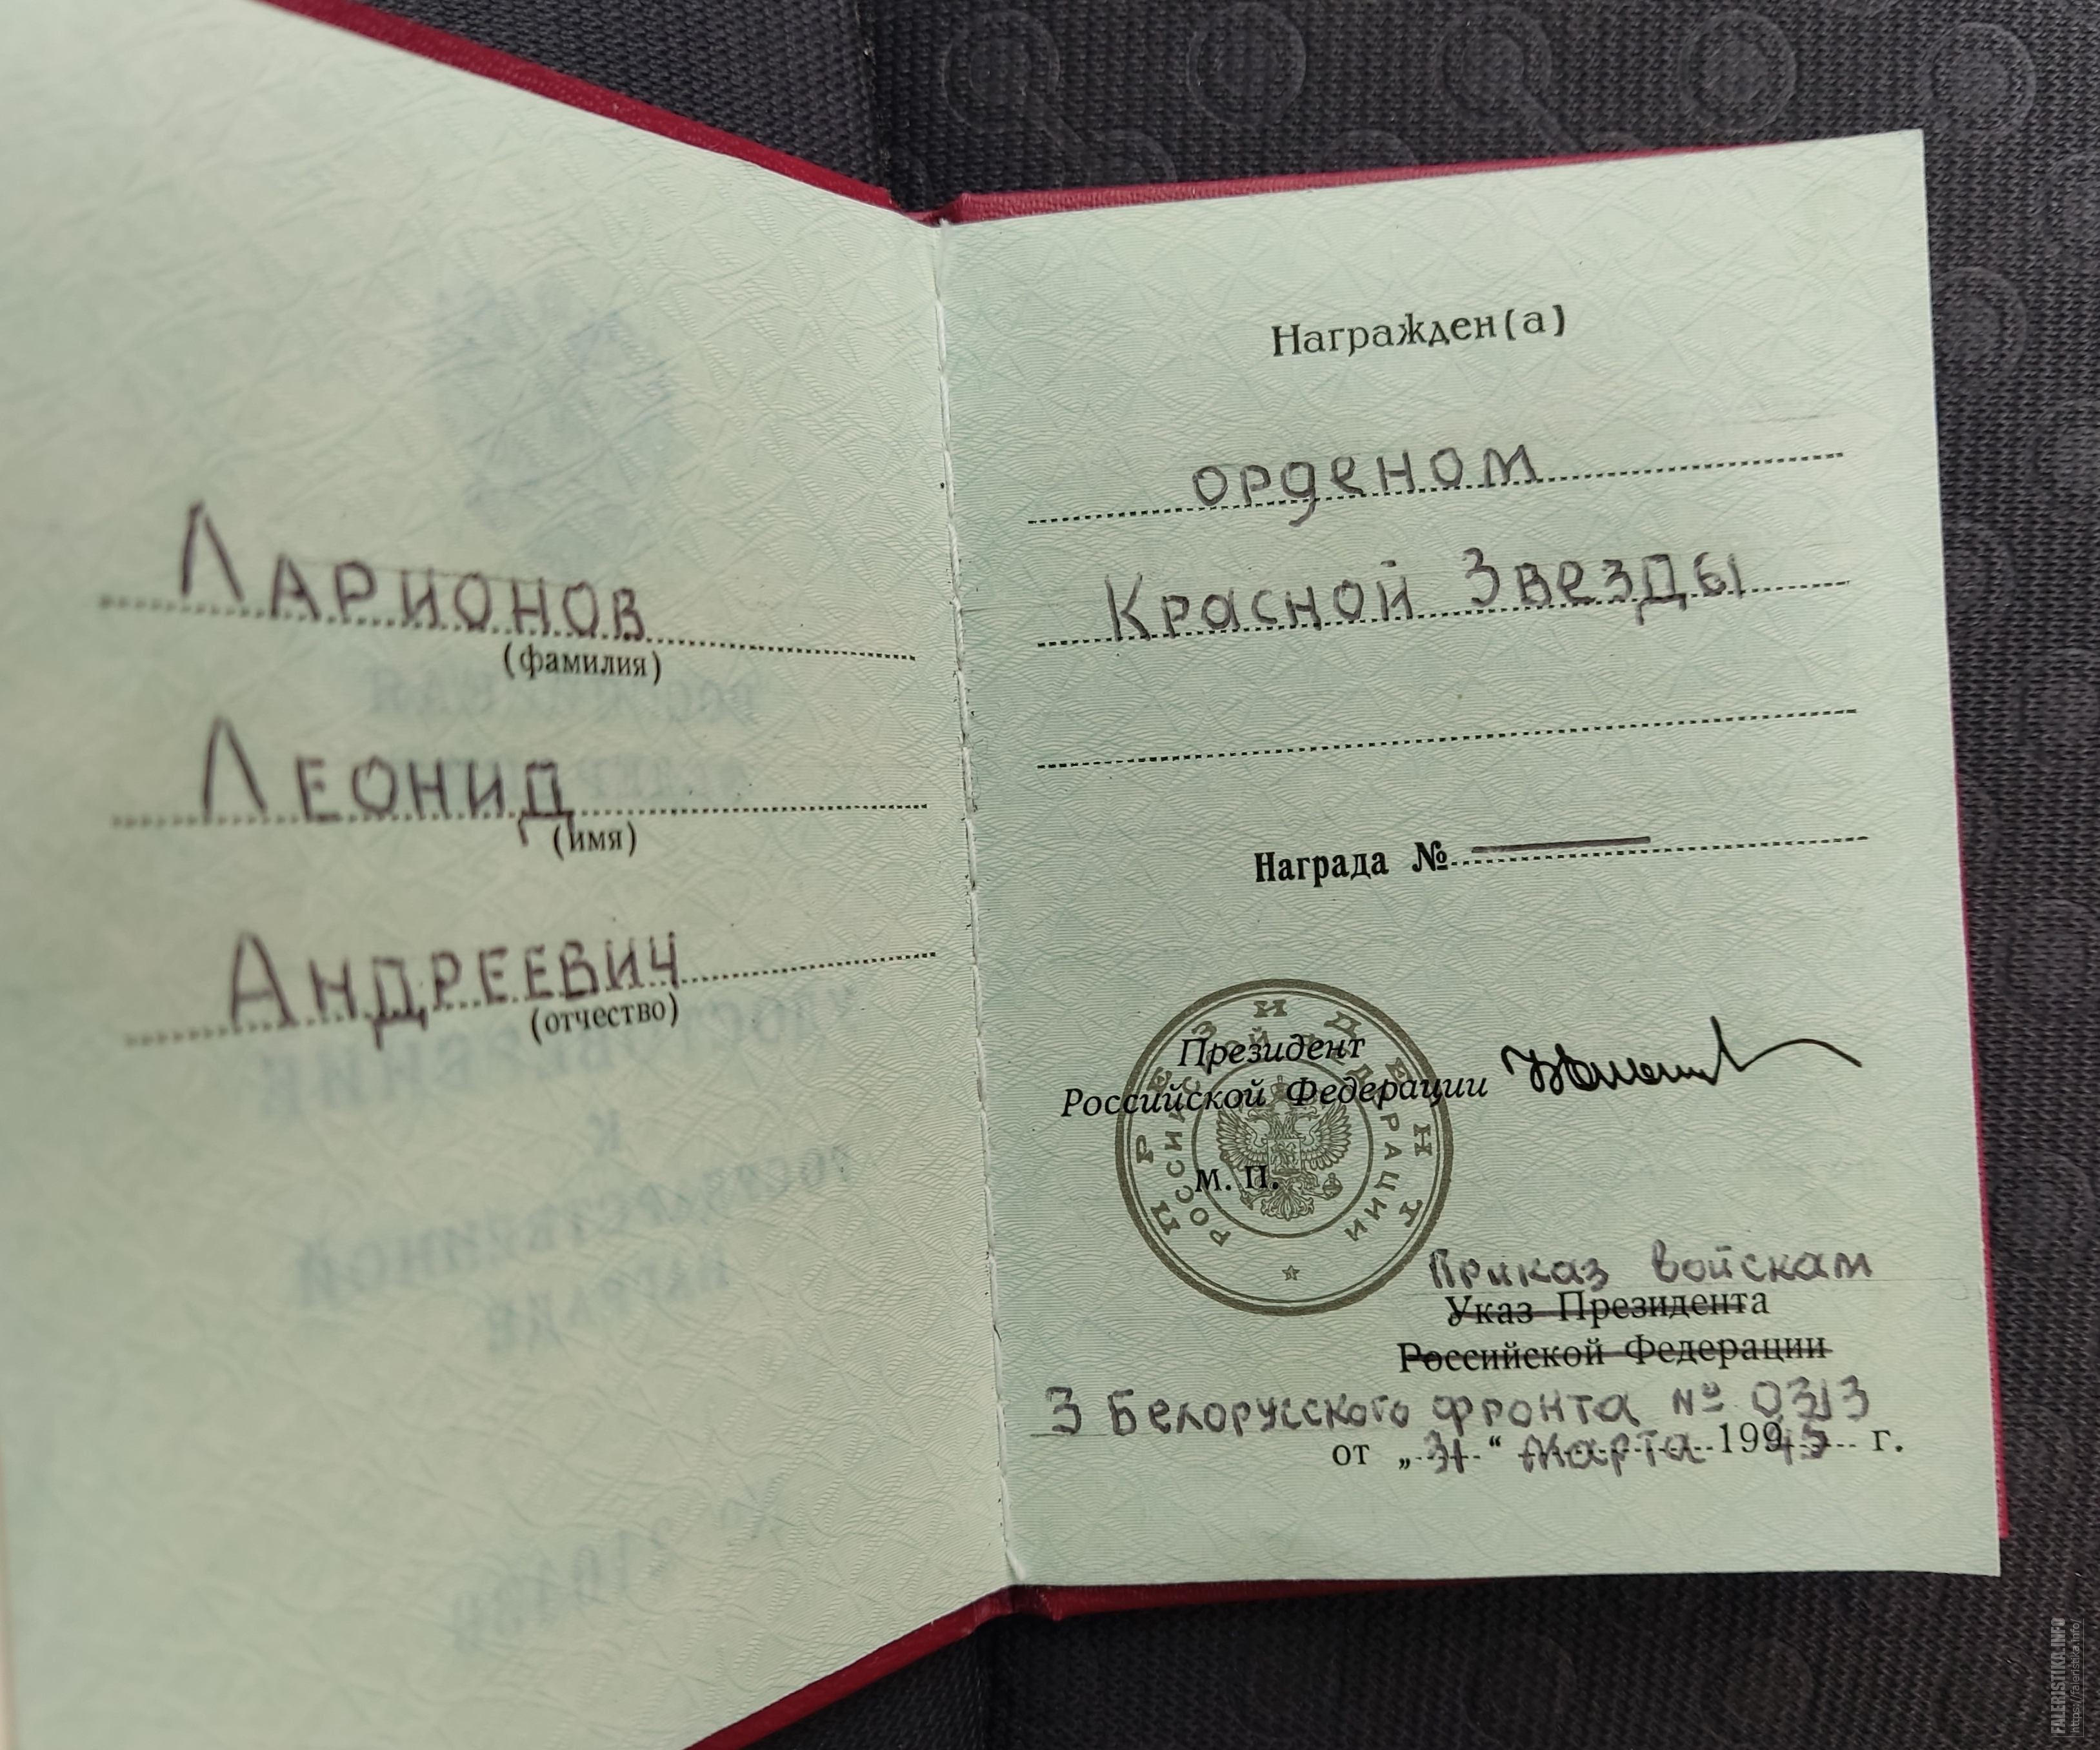 Ларионов
(фамилия)
Леонид
(имя)
Андреевич
(отчество)
Награжден(а)
орденом
Красной Звезды
Награда №
Президент
Российской Федерации
М. П.
ПРЕЗИДЕНТ
РОССИЙСКОЙ ФЕДЕРАЦИИ
Приказ войскам
Указ Президента
Российской Федерации
3 Белорусского фронта № 0313
от „31“ марта 1945 г.
FALERISTIKA.INFO
https://faleristika.info/